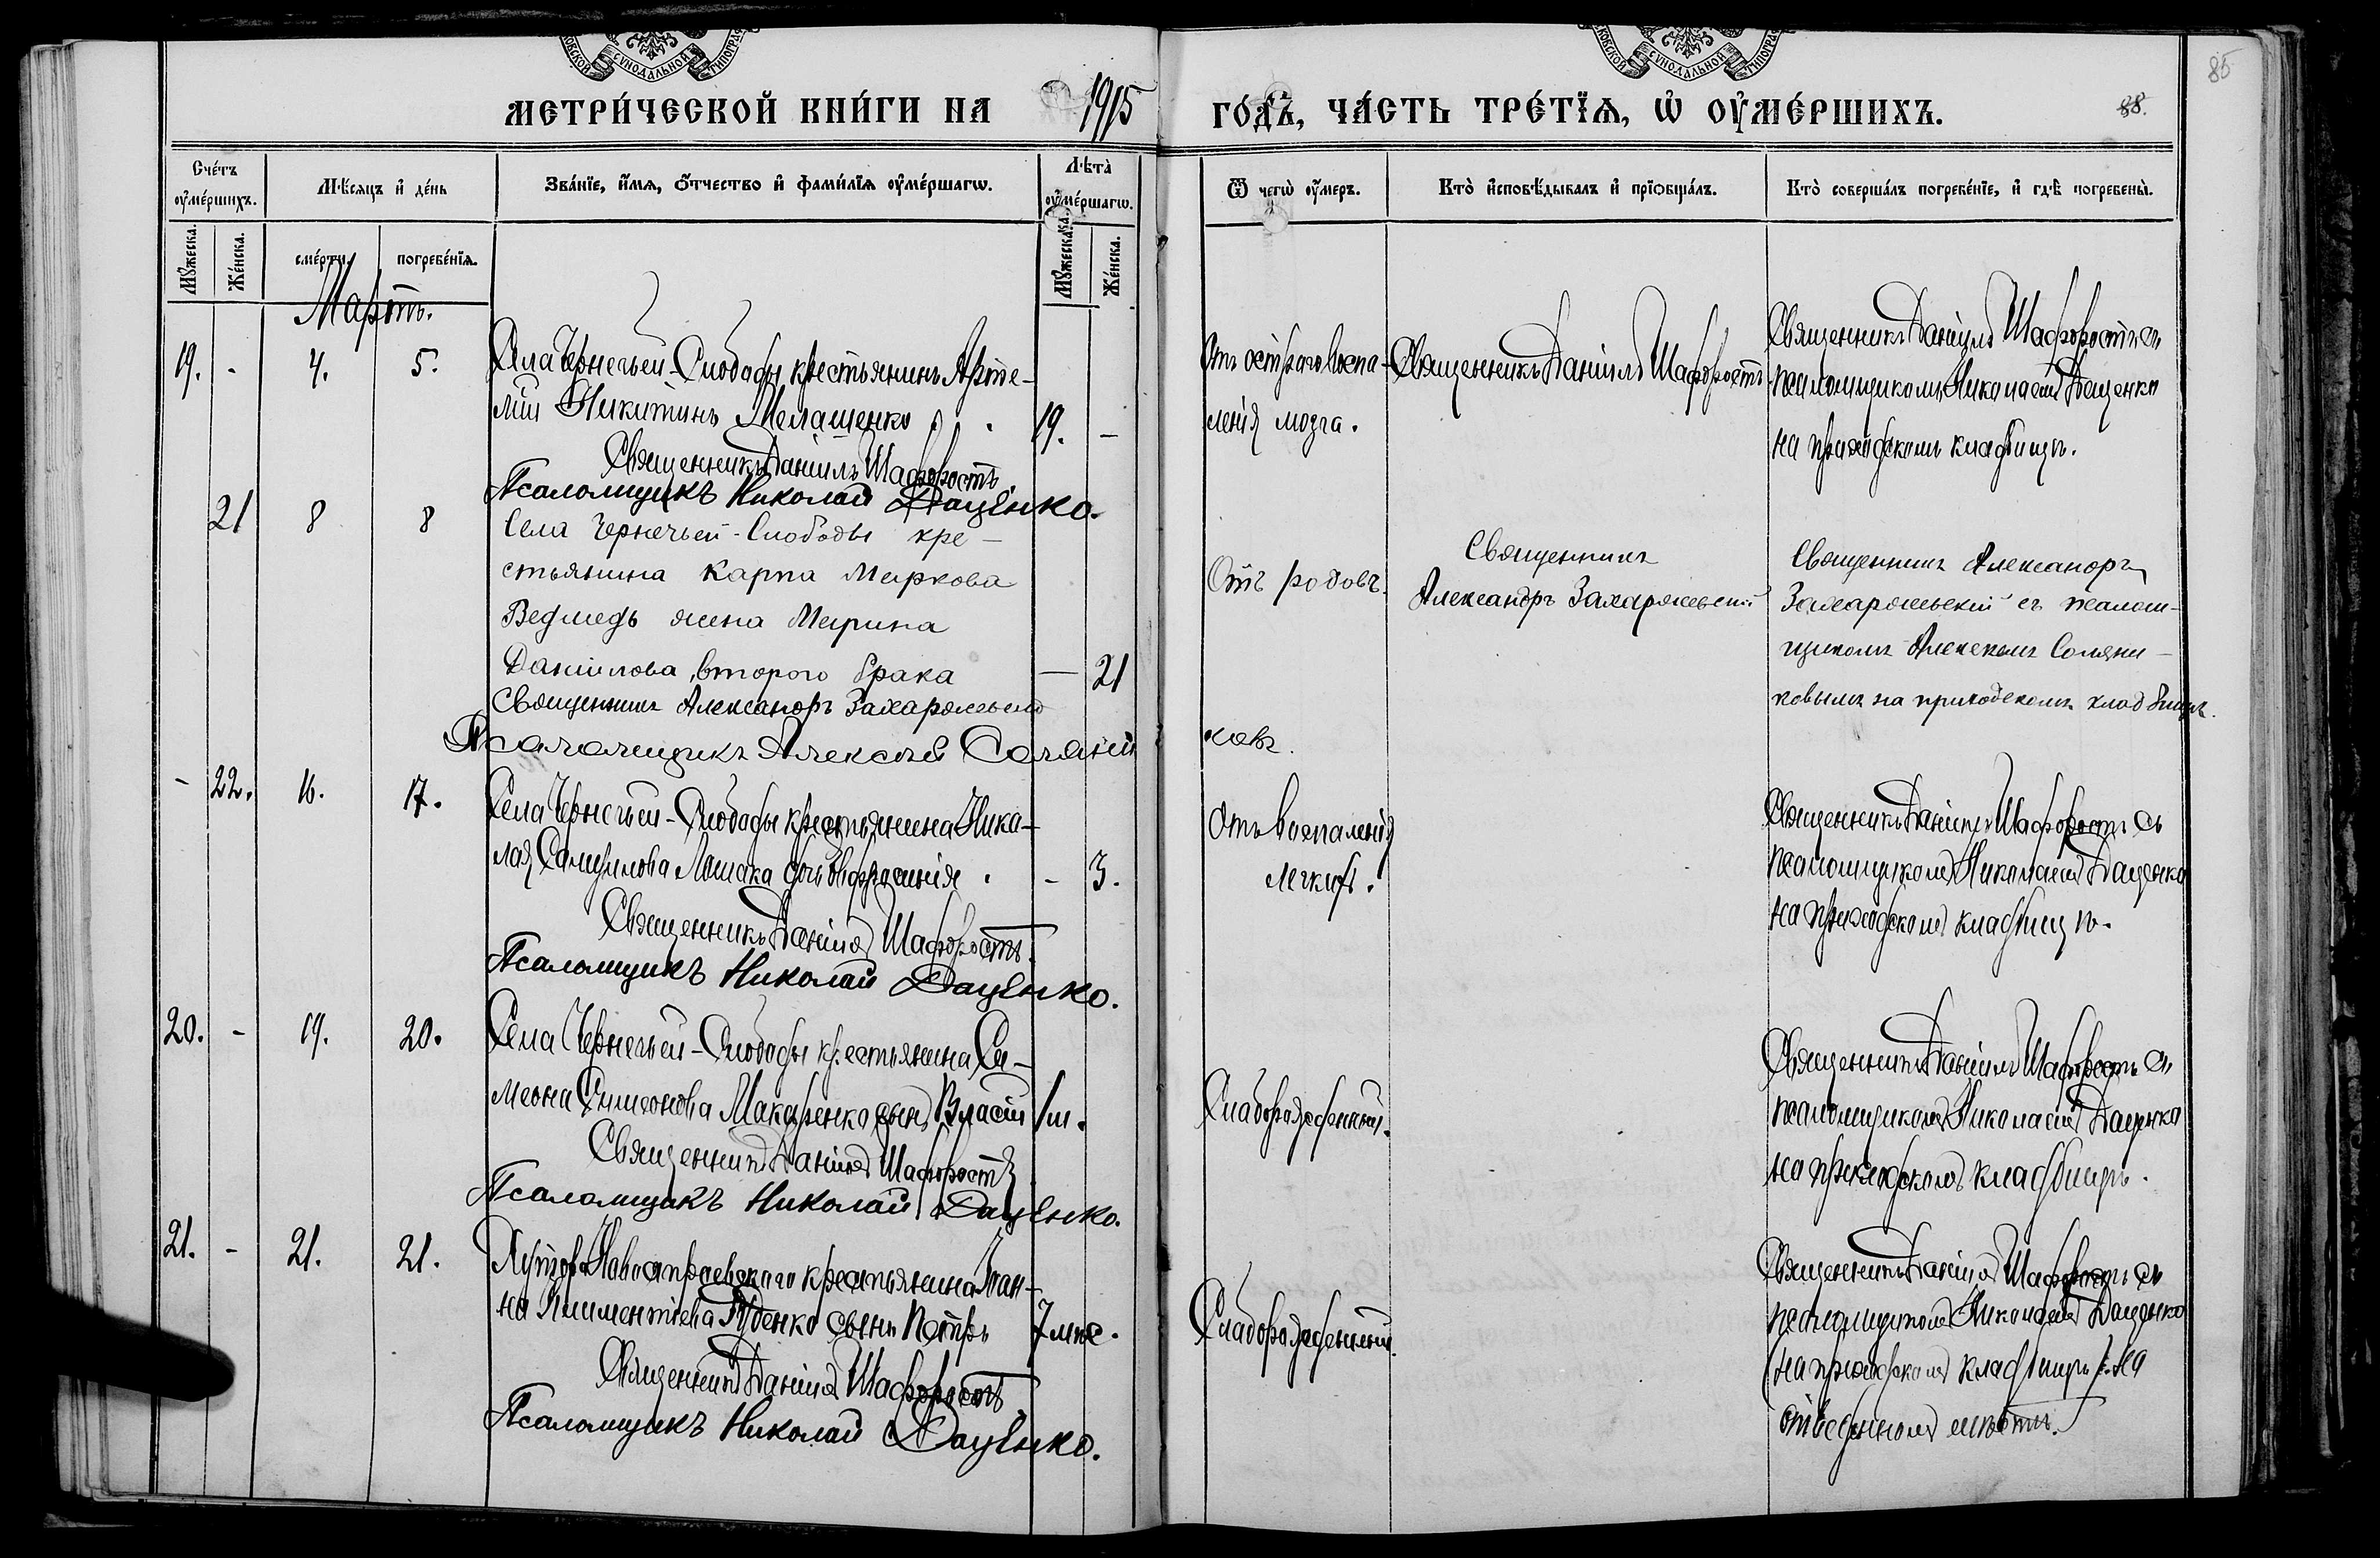 МЕТРИ́ЧЕСКОЙ КНИ́ГИ НА 1915 ГО́ДЪ, ЧА́СТЬ ТРЕ́ТЇѦ, Ѡ ОУМЕ́РШИХЪ.
88.
85
Сче́тъ оуме́ршихъ.
Мѣ́сяцъ и де́нь
Зва́нїе, и́мѧ, о́тчество и фами́лїѧ оуме́ршагѡ.
Лѣта̀ оуме́ршагѡ.
Ѿ чегѡ̀ оу́меръ.
Кто̀ исповѣ́дывалъ и прїѡбща́лъ.
Кто̀ соверша́лъ погребе́нїе, и гдѣ̀ погребены̀.
Мꙋ́жеска.
Же́нска.
сме́рти.
погребе́нїѧ.
Мꙋ́жеска.
Же́нска.
Мартъ.
19. - 4. 5.
Села Чернечьей-Слободы крестьянинъ Арте-
мій Никитинъ Мелашенко 19. –
Священникъ Даніилъ Шафоростъ
Псаломщикъ Николай Даценко.
Отъ остраго воспа-
ленія мозга.
Священникъ Даніилъ Шафоростъ
Священникъ Даніилъ Шафоростъ съ
псаломщикомъ Николаемъ Даценко
на приходскомъ кладбищѣ.
21 8 8
Села Чернечьей-Слободы кре-
стьянина Карпа Маркова
Ведмедь жена Марина
Даніилова, второго брака — 21
Священникъ Александръ Захаржевскій
Псаломщикъ Алексѣй Соляни
ковъ.
Отъ родовъ.
Священникъ
Александръ Захаржевскій
Священникъ Александръ
Захаржевскій съ псалом-
щикомъ Алексѣемъ Соляни-
ковымъ на приходскомъ кладбищѣ.
- 22. 16. 17.
Села Чернечьей-Слободы крестьянина Нико-
лая Самуилова Лошака дочь Евфросинія - 3.
Священникъ Даніилъ Шафоростъ
Псаломщикъ Николай Даценко.
Отъ воспаленія
легкихъ.
Священникъ Даніилъ Шафоростъ съ
псаломщикомъ Николаемъ Даценко
на приходскомъ кладбищѣ.
20. - 19. 20.
Села Чернечьей-Слободы крестьянина Си-
меона Симеонова Макаренко сынъ Власій 1 м.
Священникъ Даніилъ Шафоростъ
Псаломщикъ Николай Даценко.
Слаборожденный.
Священникъ Даніилъ Шафоростъ съ
псаломщикомъ Николаемъ Даценко
на приходскомъ кладбищѣ.
21. - 21. 21.
Хутора крестьянина Іоан-
на Климентіева Руденко сынъ Петръ 7 мѣс.
Священникъ Даніилъ Шафоростъ
Псаломщикъ Николай Даценко.
Слаборожденный.
Священникъ Даніилъ Шафоростъ съ
псаломщикомъ Николаемъ Даценко
на приходскомъ кладбищѣ на
отведенномъ мѣстѣ.